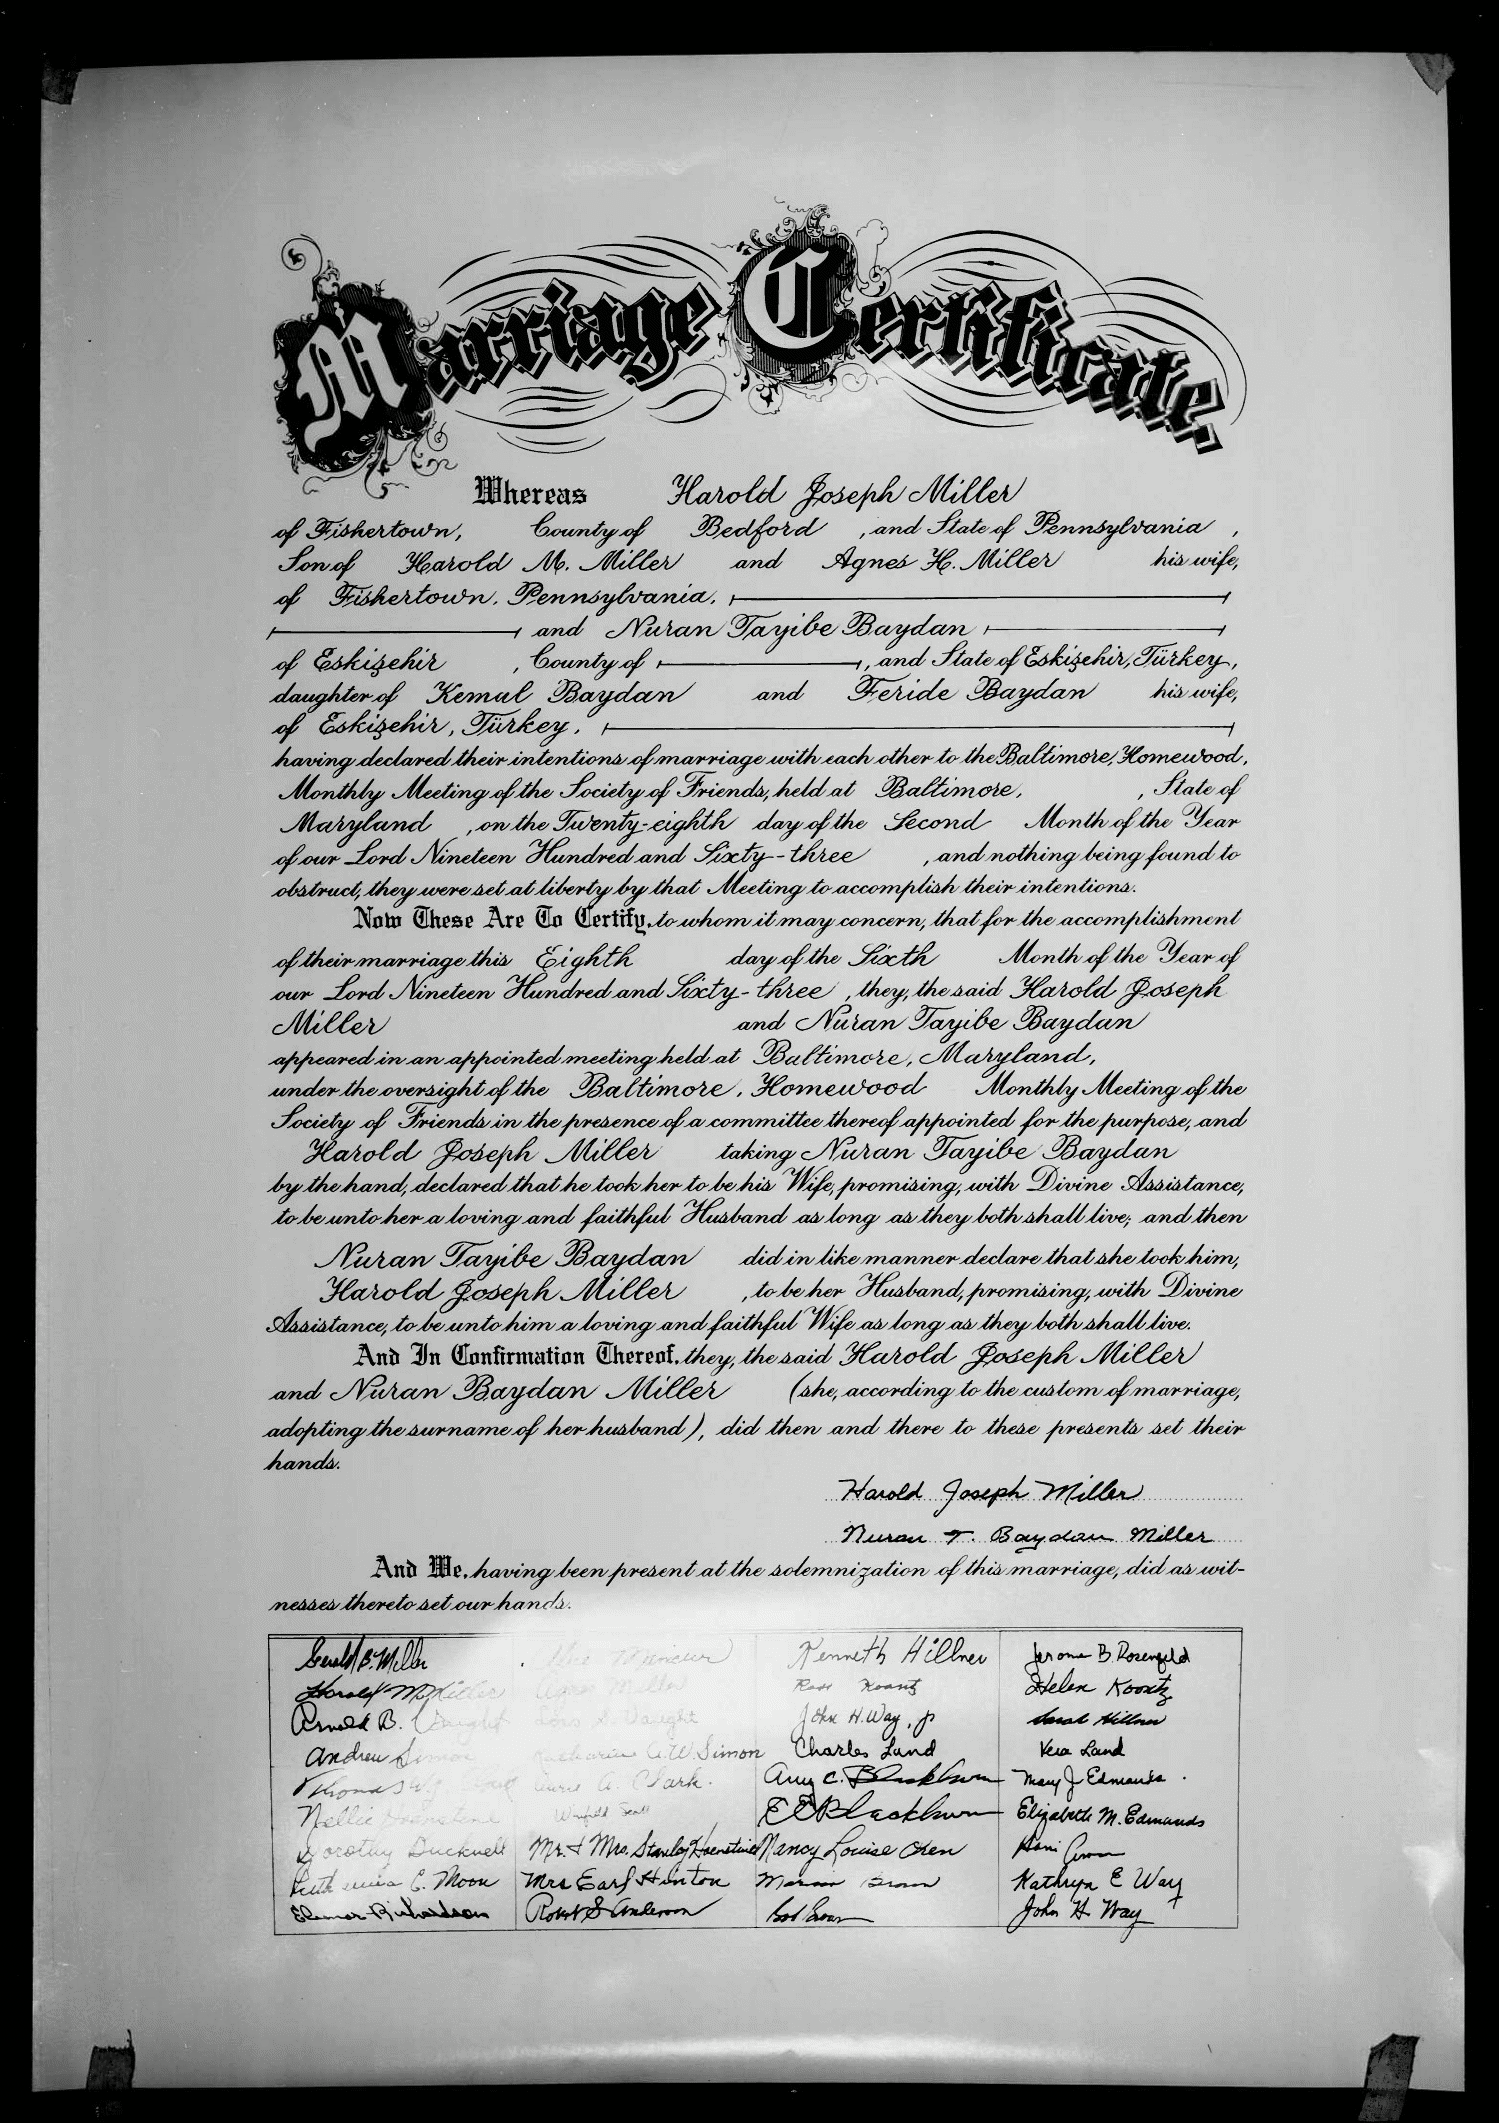 Marriage Certificate.
Whereas Harold Joseph Miller
of Fishertown, County of Bedford, and State of Pennsylvania,
Son of Harold M. Miller and Agnes H. Miller his wife,
of Fishertown, Pennsylvania,
and Nuran Tayibe Baydan
of Eskişehir, County of , and State of Eskişehir, Türkey,
daughter of Kemal Baydan and Feride Baydan his wife,
of Eskişehir, Türkey,
having declared their intentions of marriage with each other to the Baltimore, Homewood,
Monthly Meeting of the Society of Friends, held at Baltimore, , State of
Maryland, on the Twenty-eighth day of the Second Month of the Year
of our Lord Nineteen Hundred and Sixty-three, and nothing being found to
obstruct, they were set at liberty by that Meeting to accomplish their intentions.
Now These Are To Certify, to whom it may concern, that for the accomplishment
of their marriage this Eighth day of the Sixth Month of the Year of
our Lord Nineteen Hundred and Sixty-three, they, the said Harold Joseph
Miller and Nuran Tayibe Baydan
appeared in an appointed meeting held at Baltimore, Maryland,
under the oversight of the Baltimore, Homewood Monthly Meeting of the
Society of Friends in the presence of a committee thereof appointed for the purpose, and
Harold Joseph Miller taking Nuran Tayibe Baydan
by the hand, declared that he took her to be his Wife, promising, with Divine Assistance,
to be unto her a loving and faithful Husband as long as they both shall live; and then
Nuran Tayibe Baydan did in like manner declare that she took him,
Harold Joseph Miller, to be her Husband, promising, with Divine
Assistance, to be unto him a loving and faithful Wife as long as they both shall live.
And In Confirmation Thereof, they, the said Harold Joseph Miller
and Nuran Baydan Miller (she, according to the custom of marriage,
adopting the surname of her husband), did then and there to these presents set their
hands.
Harold Joseph Miller
Nuran T. Baydan Miller
And We, having been present at the solemnization of this marriage, did as wit-
nesses thereto set our hands.
Gerald B. Miller Kenneth Hillner Jerome B. Rosenfeld
Harold M. Miller Agnes Miller Rose Koontz Helen Koontz
Arnold B. Vaught Lois S. Vaught John H. Way, Jr Sarah Hillner
Andrew Simon Katharine A.W. Simon Charles Land Vera Land
A. Clark. Amy C. Blackburn Mary J. Edmunds
Nellie Winfield Scott E E Blackburn Elizabeth M. Edmunds
Dorothy Bucknell Mr. & Mrs. Stanley Hoenstine Nancy Louise Oren
C. Moon Mrs Earl Hinton Marion Brown Kathryn E Way
Eleanor Richardson Robert S Anderson Bob Brown John H. Way